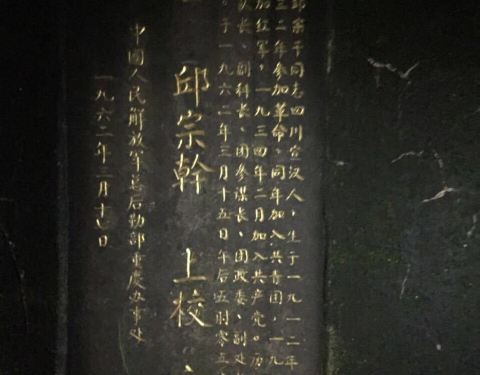 邱宗干同志四川宣汉人，生于一九一二年
三二年参加革命，同年加入共青团，一九
加红军，一九三四年二月加入共产党。历
队长、副科长、团参谋长、团政委、副处
。于一九六二年三月十五日午后五时零五
邱宗幹 上校
中國人民解放军总后勤部重庆办事处
一九六二年三月十日